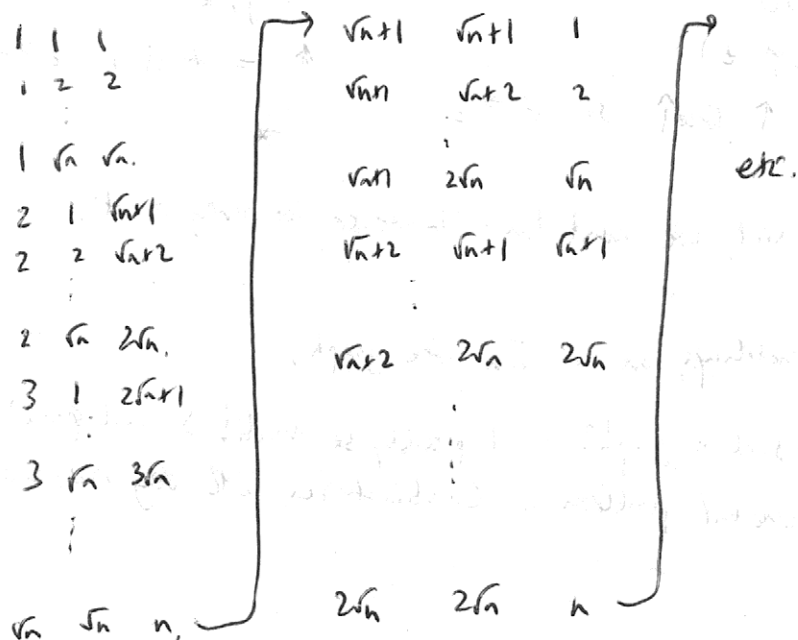 1 1 1
1 2 2
⋮
1 √n √n.
2 1 √n+1
2 2 √n+2
⋮
2 √n 2√n.
3 1 2√n+1
⋮
3 √n 3√n
⋮
√n √n n.
√n+1 √n+1 1
√n+1 √n+2 2
⋮
√n+1 2√n √n
√n+2 √n+1 √n+1
⋮
√n+2 2√n 2√n
⋮
2√n 2√n n
etc.